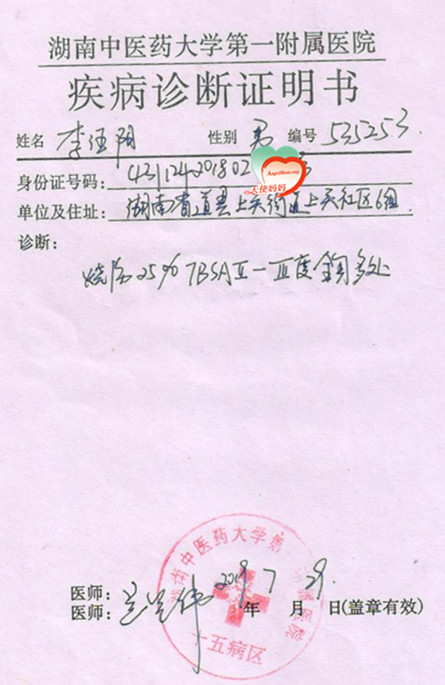 湖南中医药大学第一附属医院
疾病诊断证明书
姓名 李 阳 性别 男 编号 535253
身份证号码: 431124201802
AngelMom.org
天使妈妈
单位及住址: 湖南省道县上关街道上关社区6组
诊断:
烧伤25% TBSA II-III度 全身多处
湖南中医药大学第一附属医院
医师:
医师: 2019年7月29日(盖章有效)
十五病区